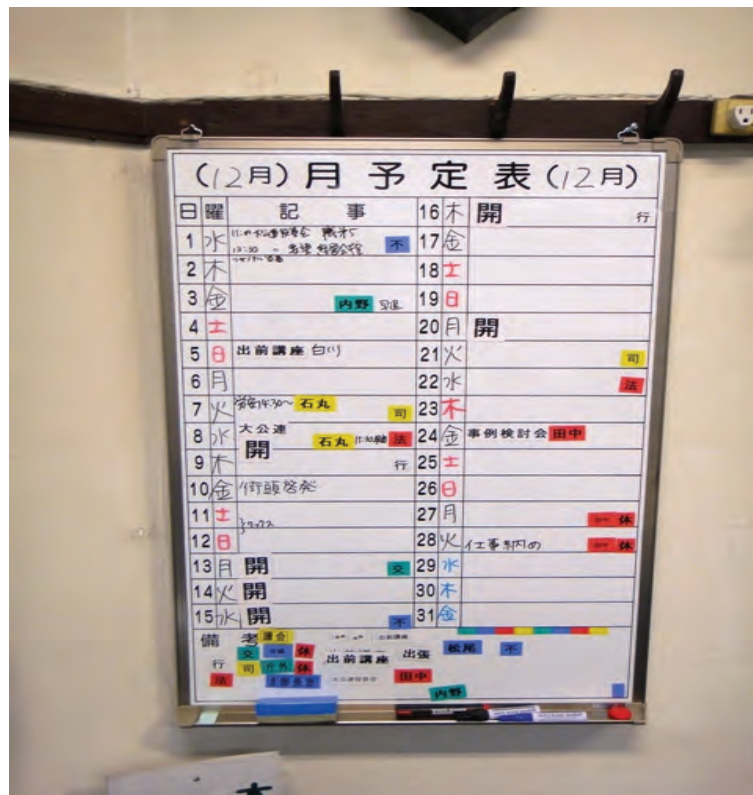 (12月)月予定表(12月)
日 曜 記事
1 水 不
13:30
2 木
3 金 内野 早退
4 土
5 日 出前講座 白川
6 月
7 火 14:30~ 石丸 司
8 水 大公連 開 石丸 法
9 木 行
10 金 街頭啓発
11 土
12 日
13 月 開 交
14 火 開
15 水 開 不
16 木 開 行
17 金
18 土
19 日
20 月 開
21 火 司
22 水 法
23 木
24 金 事例検討会 田中
25 土
26 日
27 月 休
28 火 仕事納め 休
29 水
30 木
31 金
備考 議会 出前講座
交 休 出前講座 出張 松尾 不
行 司 庁外 休
法 田中
内野